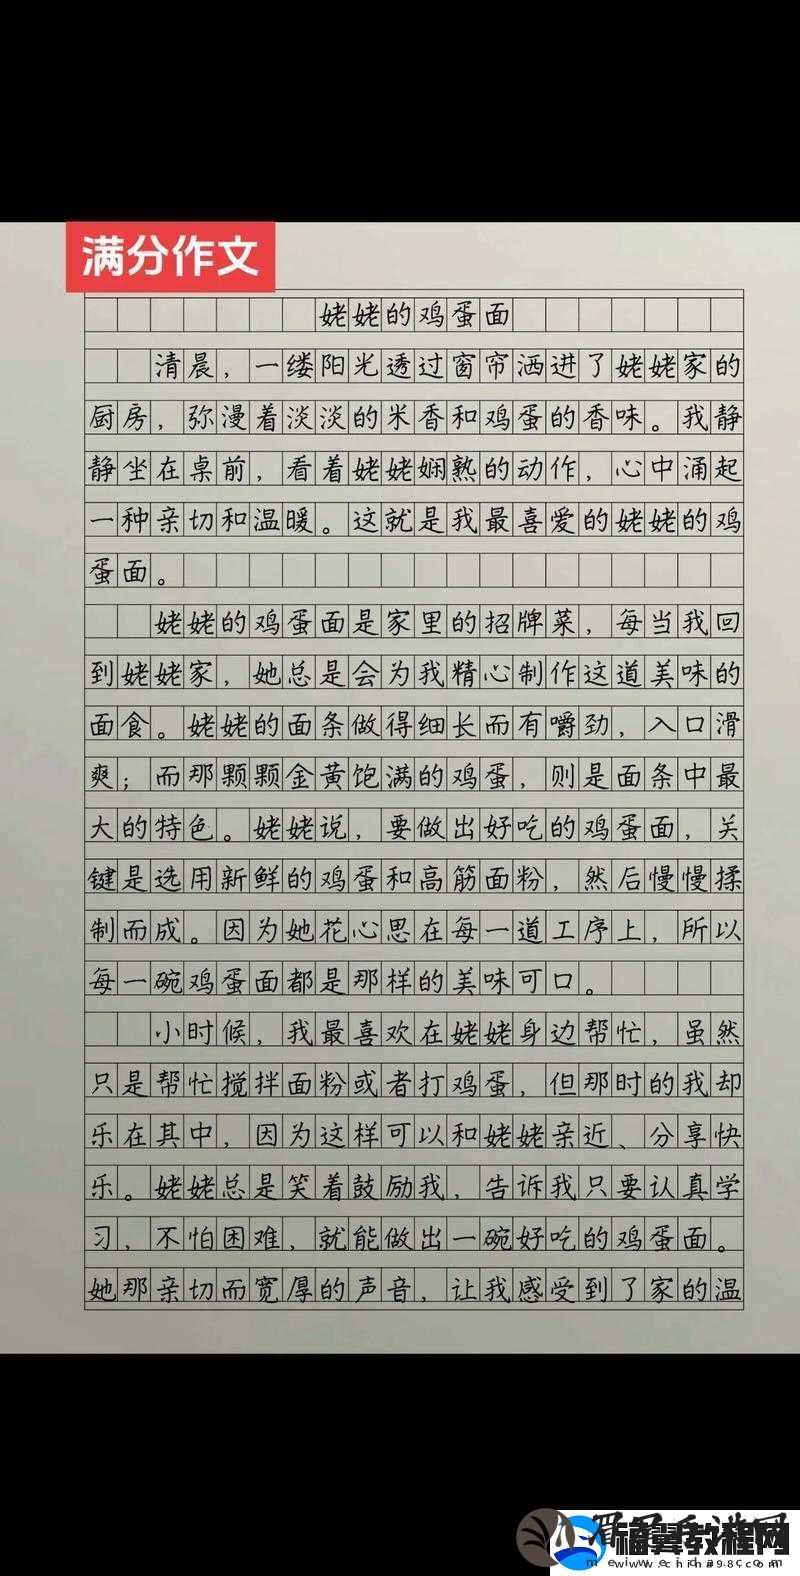 满分作文
姥姥的鸡蛋面
清晨，一缕阳光透过窗帘洒进了姥姥家的
厨房，弥漫着淡淡的米香和鸡蛋的香味。我静
静坐在桌前，看着姥姥娴熟的动作，心中涌起
一种亲切和温暖。这就是我最喜爱的姥姥的鸡
蛋面。
姥姥的鸡蛋面是家里的招牌菜，每当我回
到姥姥家，她总是会为我精心制作这道美味的
面食。姥姥的面条做得细长而有嚼劲，入口滑
爽；而那颗颗金黄饱满的鸡蛋，则是面条中最
大的特色。姥姥说，要做出好吃的鸡蛋面，关
键是选用新鲜的鸡蛋和高筋面粉，然后慢慢揉
制而成。因为她花心思在每一道工序上，所以
每一碗鸡蛋面都是那样的美味可口。
小时候，我最喜欢在姥姥身边帮忙，虽然
只是帮忙搅拌面粉或者打鸡蛋，但那时的我却
乐在其中，因为这样可以和姥姥亲近、分享快
乐。姥姥总是笑着鼓励我，告诉我只要认真学
习，不怕困难，就能做出一碗好吃的鸡蛋面。
她那亲切而宽厚的声音，让我感受到了家的温
福翼教程网
www.china98.com